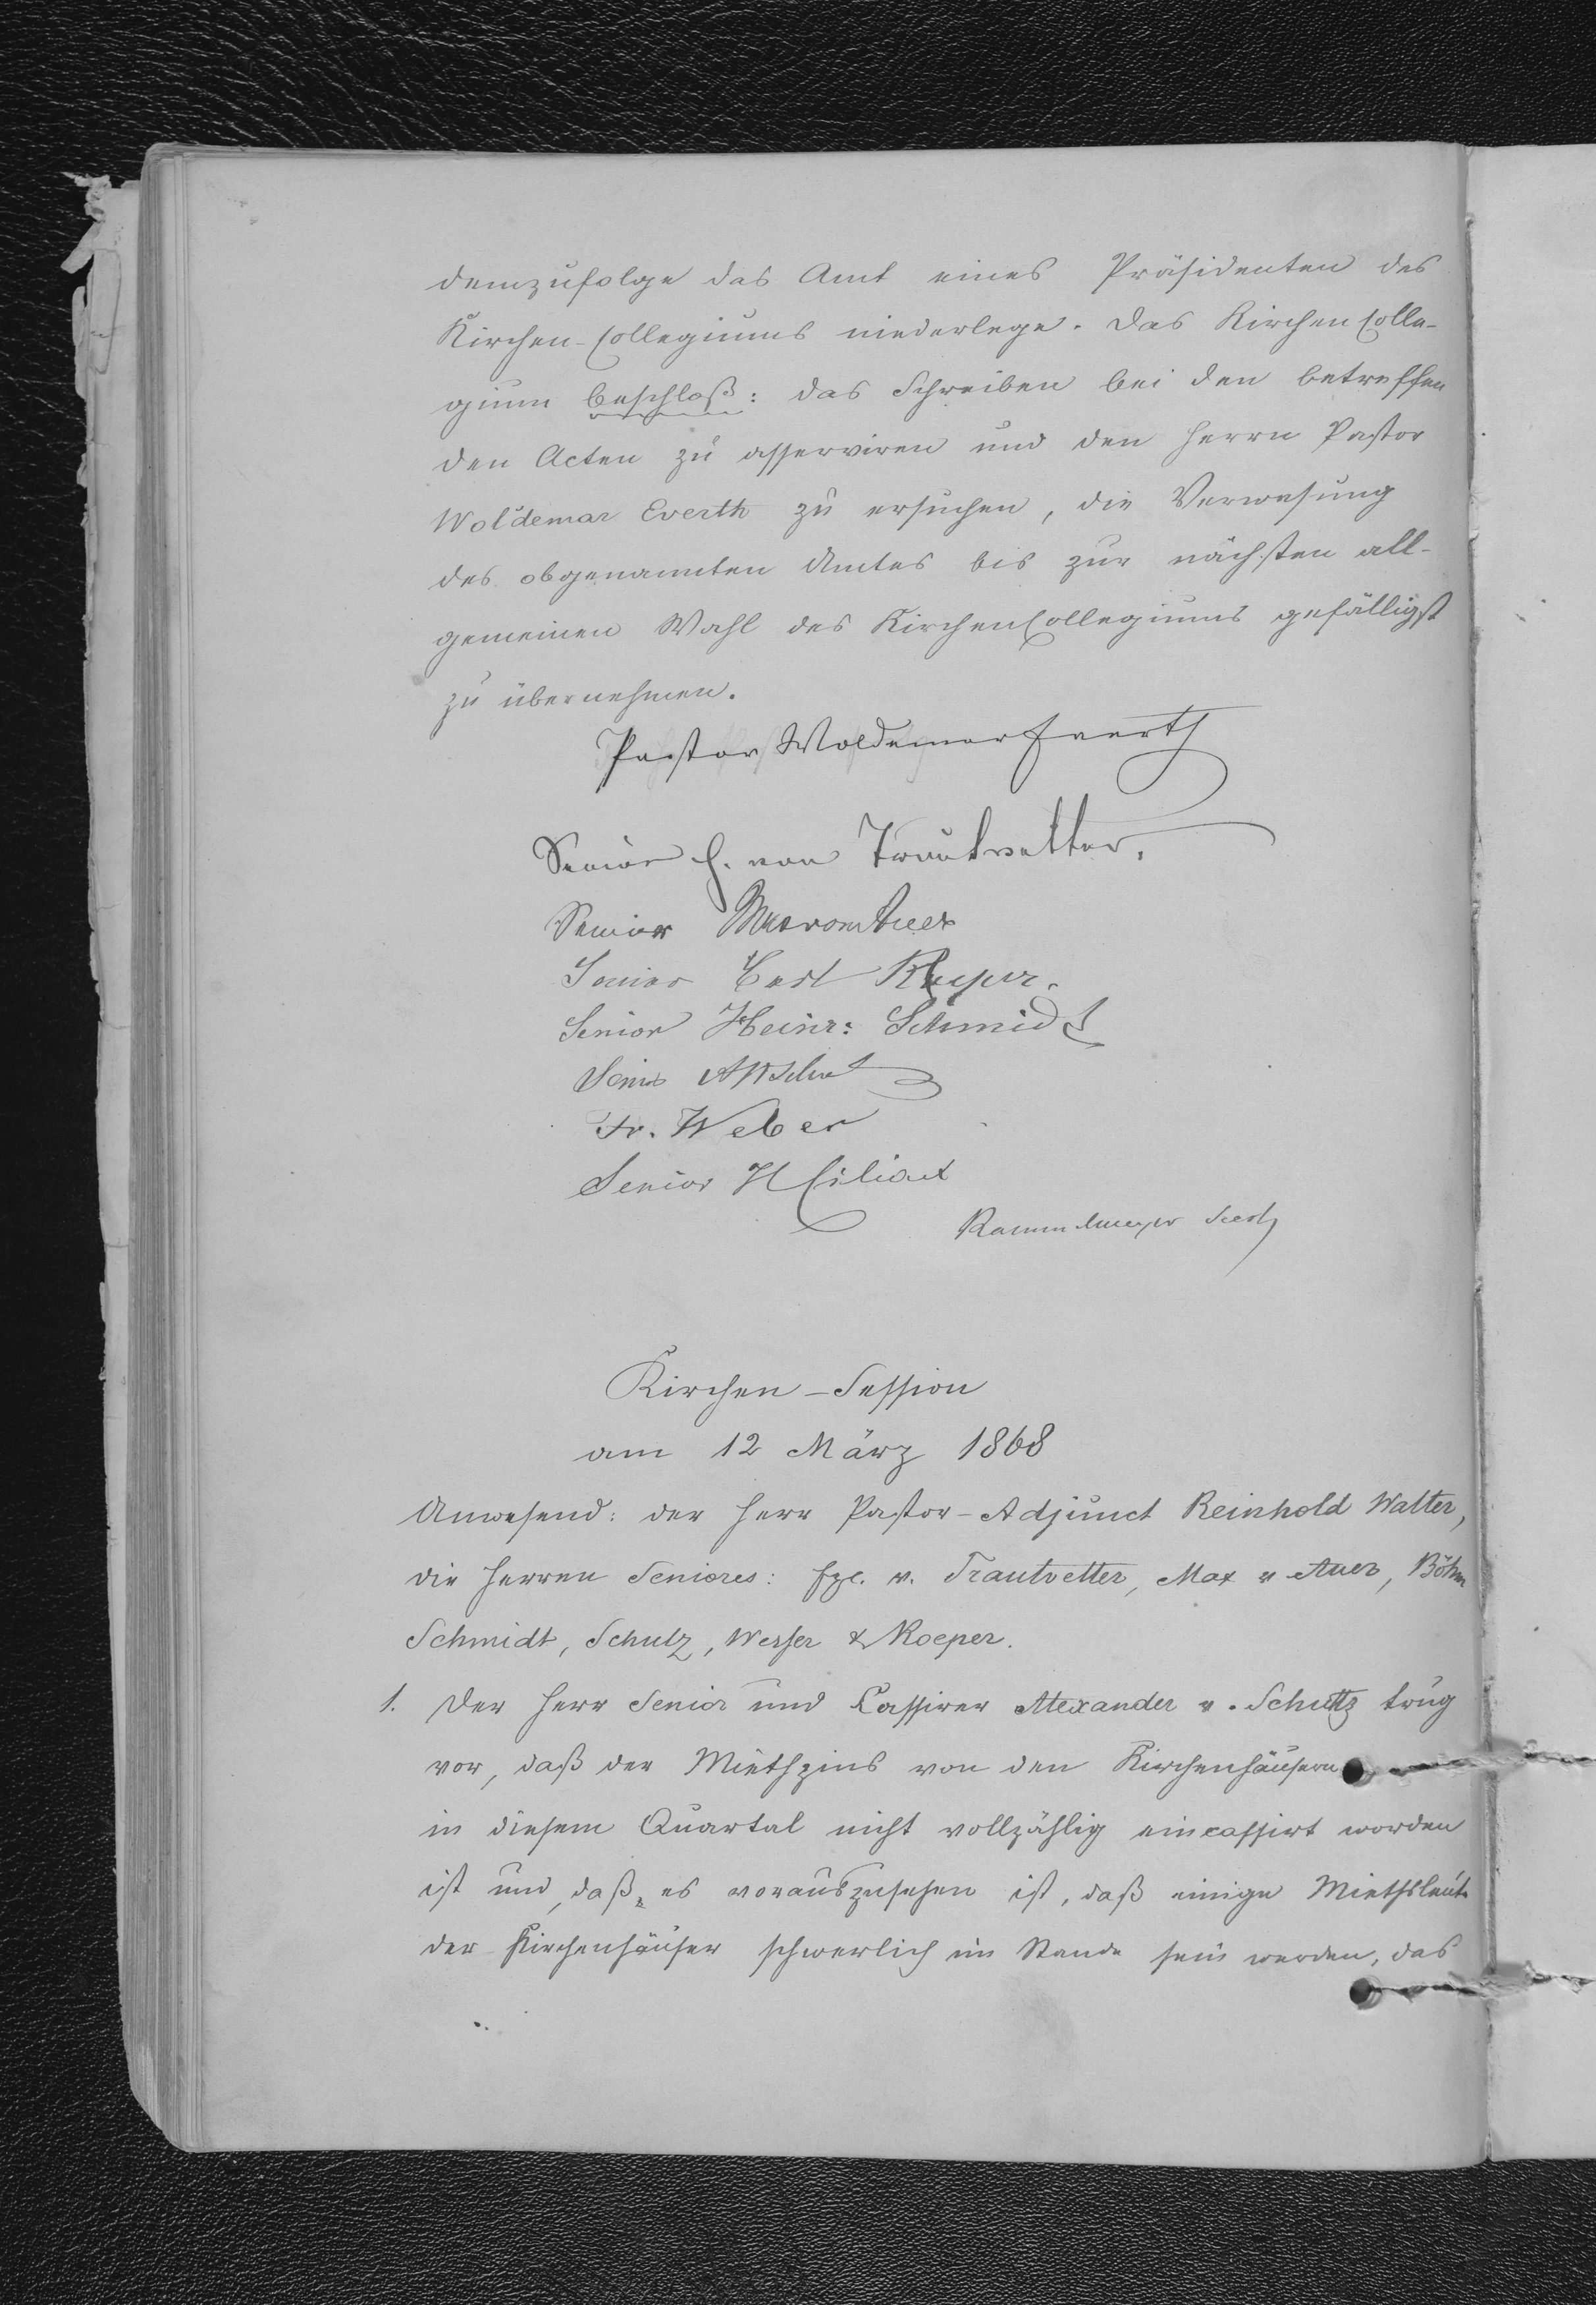 demzufolge das Amt eines Präsidenten des
Kirchen-Collegiums niederlege. Das Kirchen Colle-
gium beschloß: das Schreiben bei den betreffen
den Acten zu asserviren und den Herrn Pastor
Woldemar Everth zu ersuchen, die Verwesung
des obgenannten Amtes bis zur nächsten all-
gemeinen Wahl des KirchenCollegiums gefälligst
zu übernehmen.
Pastor Woldemar Everth
Senior E. von Trautvetter.
Senior Max von Auer
Senior Carl Roeper.
Senior Heinr: Schmidt
Senior
Fr. Weber
Senior H Ciliax
Rammelmeyer Secr
Kirchen-Session
am 12 März 1868
Anwesend: der Herr Pastor-Adjunct Reinhold Walter,
die Herren Seniores: Exc. v. Trautvetter, Max v Auer, Böhm
Schmidt, Schulz, Weber & Roeper.
1. Der Herr Senior und Cassirer Alexander v. Schultz trug
vor, daß der Miethzins von den Kirchenhäusern
in diesem Quartal nicht vollzählig eincassirt worden
ist und, daß es vorauszusehen ist, daß einige Miethsleute
der Kirchenhäuser schwerlich im Stande sein werden, das